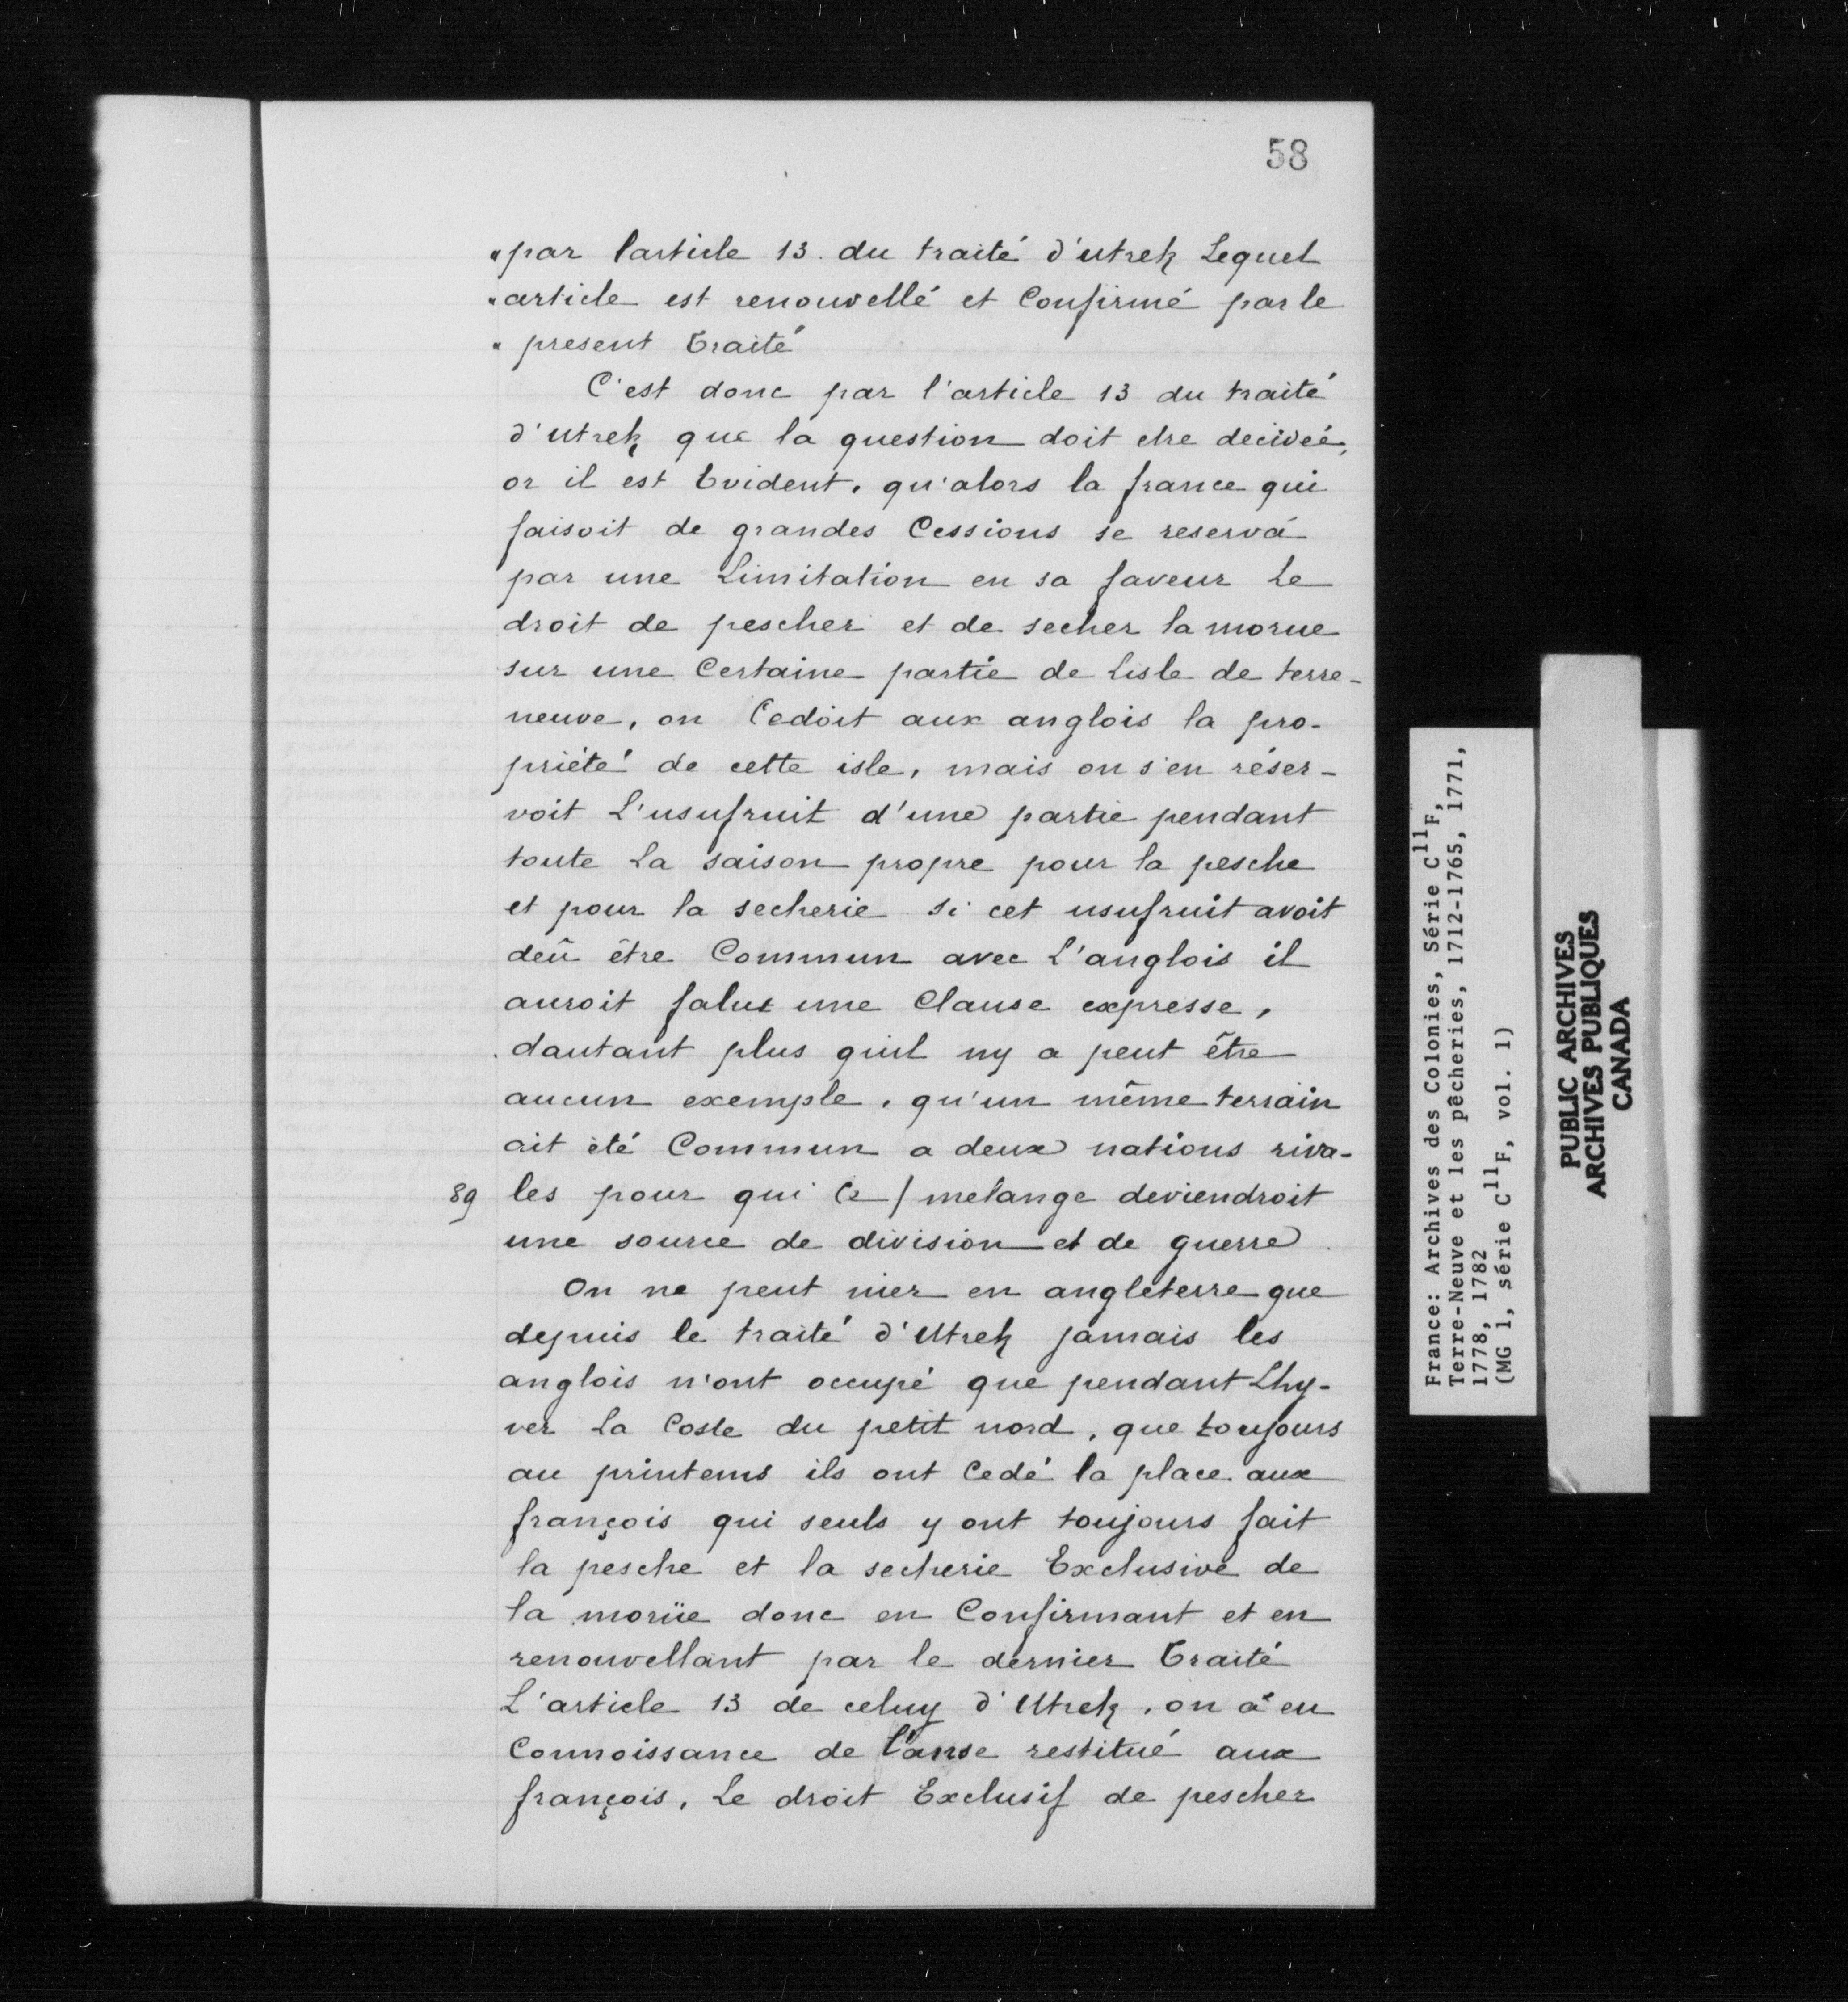 58
"par l'article 13. du traité d'utrek Lequel
"article est renouvellé et Confirmé par le
" present Traité
C'est donc par l'article 13 du traité
d'utrek que la question doit etre decideé,
or il est Evident, qu'alors la france qui
faisoit de grandes Cessions se reserva
par une Limitation en sa faveur Le
droit de pescher et de secher la morue
sur une Certaine partie de Lisle de terre-
neuve, on Cedoit aux anglois la pro-
priété de cette isle, mais on s'en réser-
voit L'usufruit d'une partie pendant
toute La saison propre pour la pesche
et pour la secherie si cet usufruit avoit
deû être Commun avec L'anglois il
auroit falut une Clause expresse,
dautant plus quil ny a peut être
aucun exemple, qu'un même terrain
ait été Commun a deux nations riva-
89 les pour qui Ce / melange deviendroit
une source de division et de guerre.
On ne peut nier en angleterre que
depuis le traité d'Utrek jamais les
anglois n'ont occupé que pendant Lhy-
ver La Coste du petit nord, que toujours
au printems ils ont Cedé la place aux
françois qui seuls y ont toujours fait
la pesche et la secherie Exclusive de
la morüe donc en Confirmant et en
renouvellant par le dernier Traité
L'article 13 de celuy d'Utrek, on a en
Connoissance de Cause restitué aux
françois, Le droit Exclusif de pescher
France: Archives des Colonies, Série C11F,
Terre-Neuve et les pêcheries, 1712-1765, 1771,
1778, 1782
(MG 1, série C11F, vol. 1)
PUBLIC ARCHIVES
ARCHIVES PUBLIQUES
CANADA